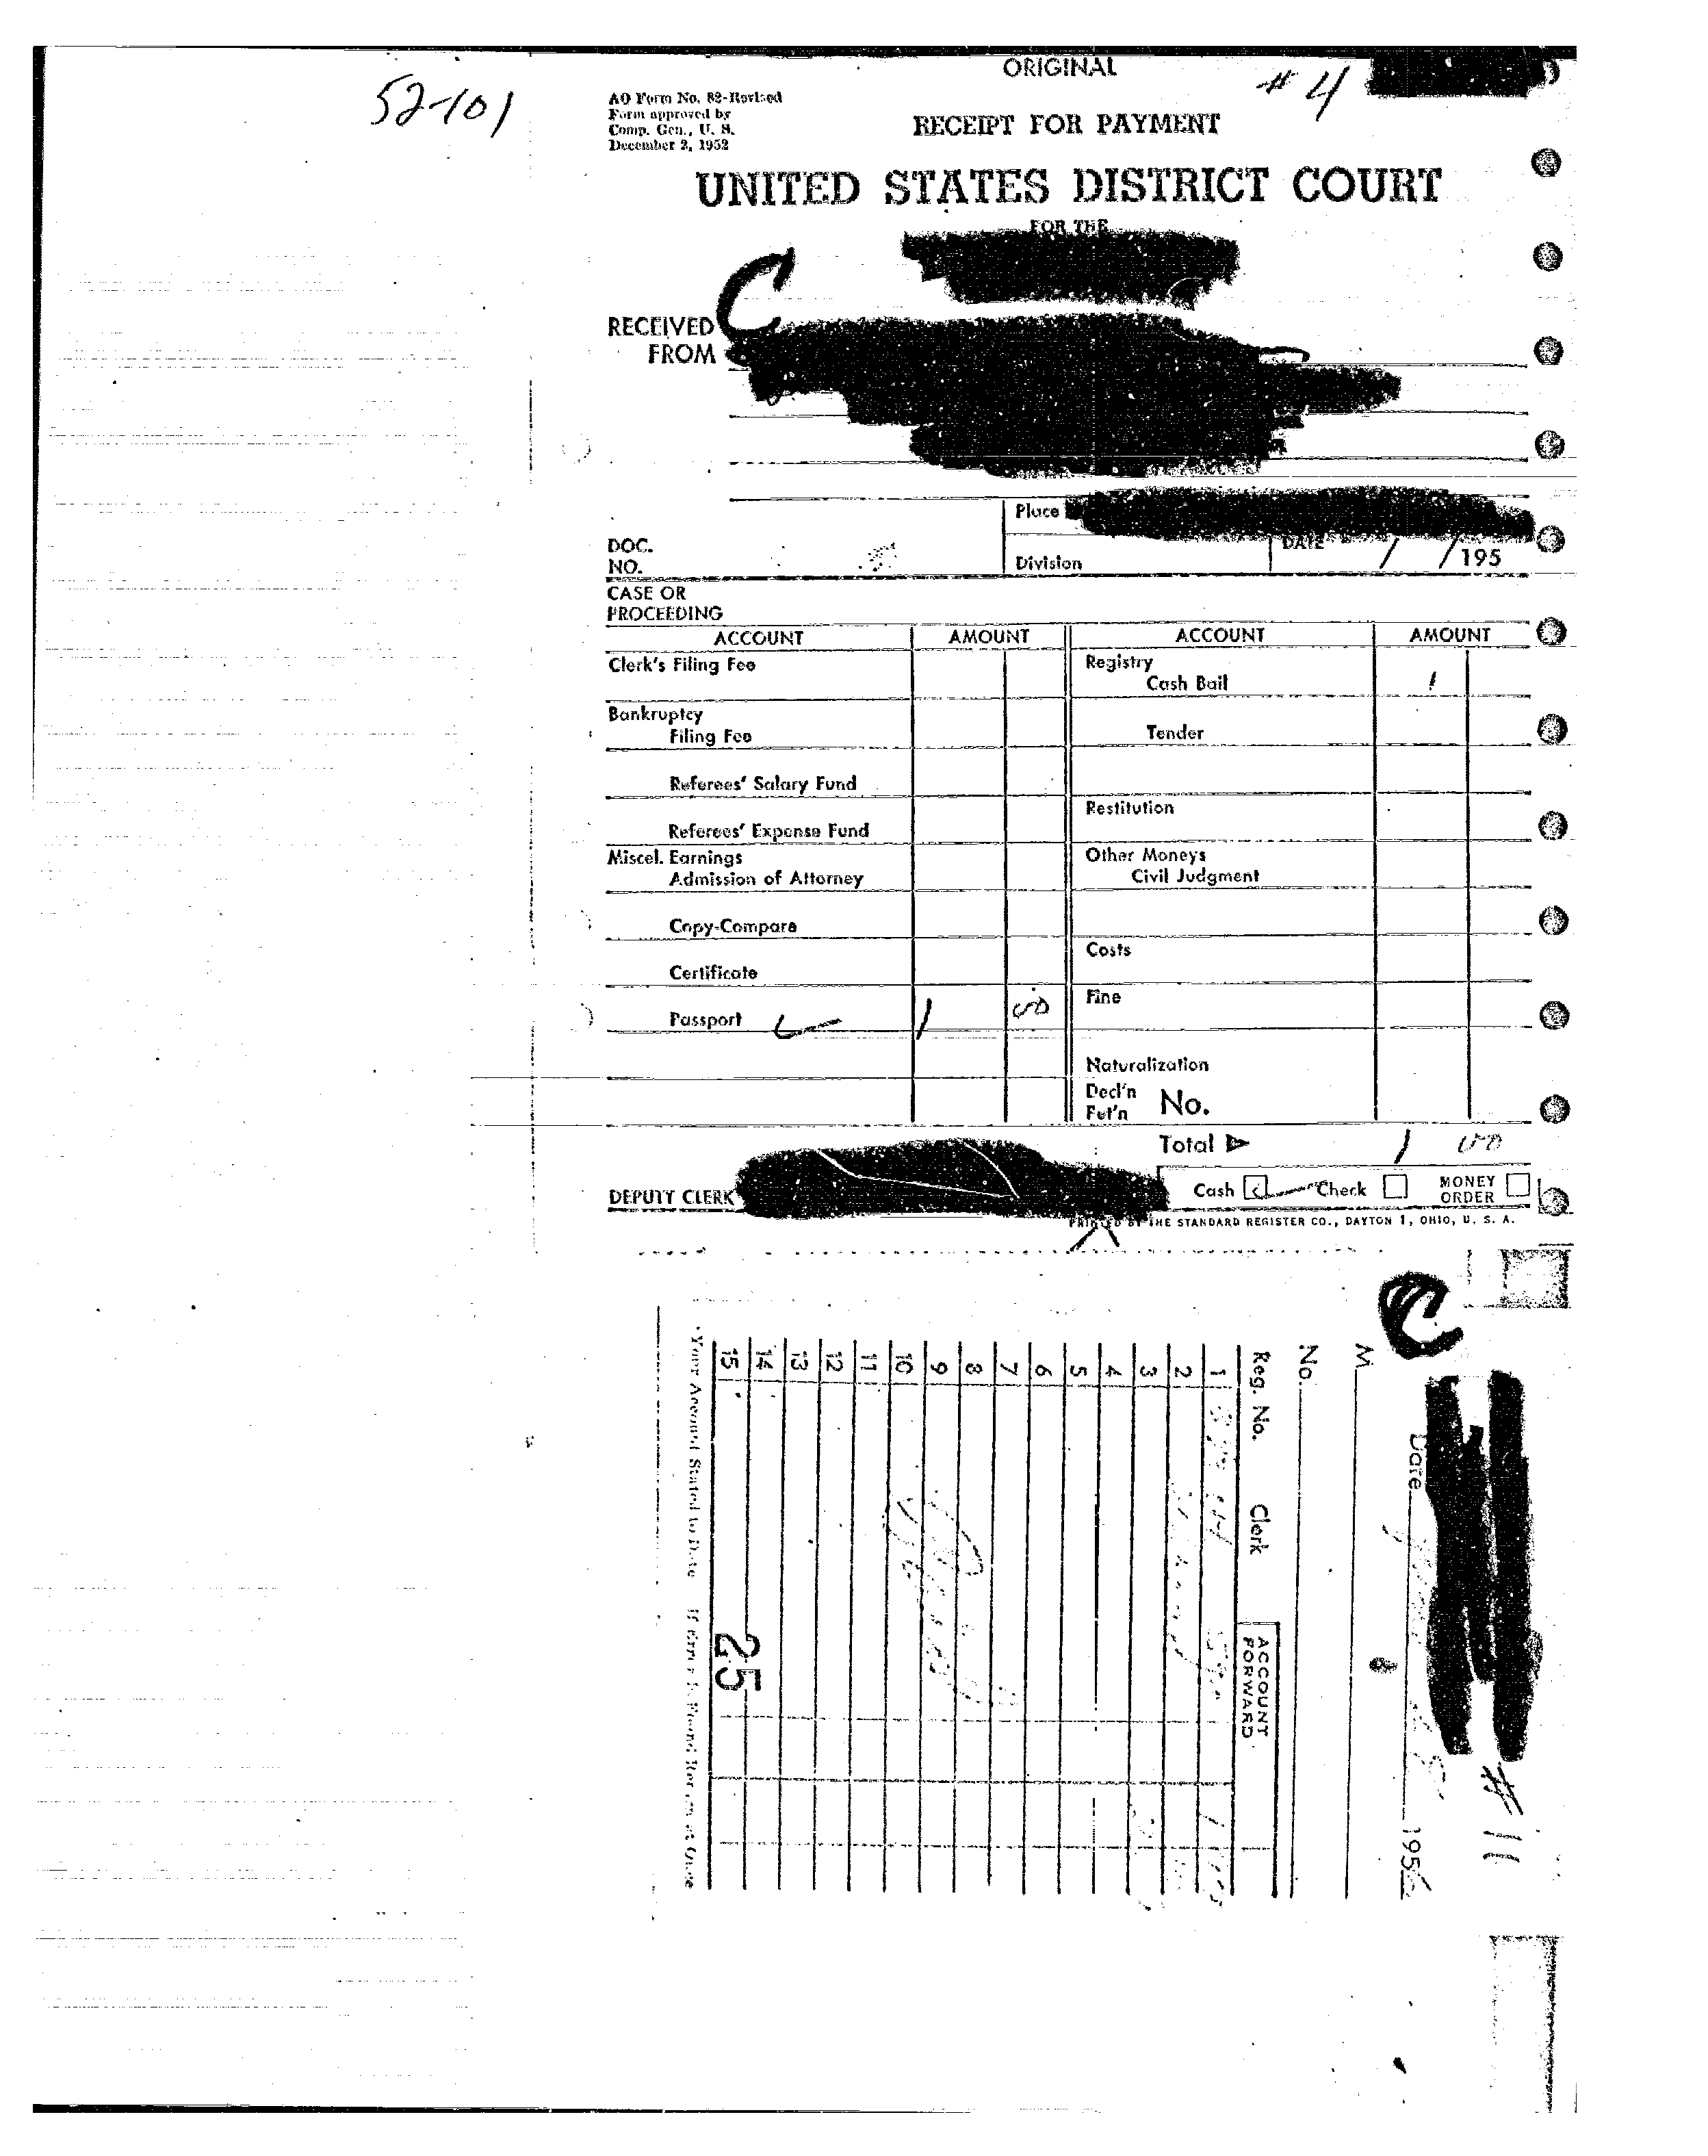 52-101
ORIGINAL
# 4
AO Form No. 82-Revised
Form approved by
Comp. Gen., U. S.
December 2, 1952
RECEIPT FOR PAYMENT
UNITED STATES DISTRICT COURT
FOR THE
C
RECEIVED
FROM
Place
DOC.
NO.
Division
DATE / /195
CASE OR
PROCEEDING
ACCOUNT AMOUNT ACCOUNT AMOUNT
Clerk's Filing Fee
Registry
Cash Bail
Bankruptcy
Filing Fee
Tender
Referees' Salary Fund
Restitution
Referees' Expense Fund
Miscel. Earnings
Admission of Attorney
Other Moneys
Civil Judgment
Copy-Compare
Costs
Certificate
Fine
Passport 1
Naturalization
Decl'n
Pet'n No.
Total 1 00
DEPUTY CLERK
Cash Check MONEY
ORDER
PRINTED BY THE STANDARD REGISTER CO., DAYTON 1, OHIO, U. S. A.
C
# 11
Date 195
M
No.
Reg. No. Clerk ACCOUNT
FORWARD
1
2
3
4
5
6
7
8
9
10
11
12
13
14
15
25
Your Account Stated to Date If Error Is Found Return at Once